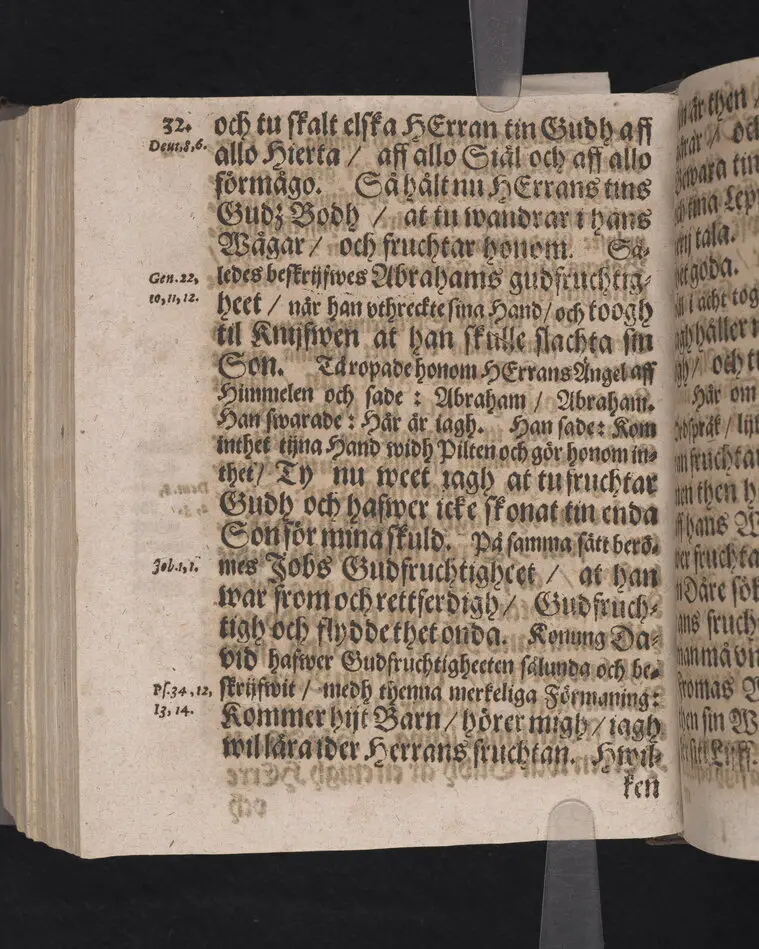 32.
Deut.8,6.
och tu skalt elska HErran tin Gudh aff
allo Hierta / aff allo Siäl och aff allo
förmågo. Så hålt nu HErrans tins
Gudz Bodh / at tu wandrar i hans
Wägar / och fruchtar honom. Så-
Gen.22,
10,11,12.
ledes beskrijfwes Abrahams gudfruchtig-
heet / när han vthreckte sina Hand / och toogh
til Knijfwen at han skulle slachta sin
Son. Tå ropade honom HErrans Ängel aff
Himmelen och sade : Abraham / Abraham.
Han swarade : Här är iagh. Han sade : Kom
inthet tijna Hand widh Pilten och gör honom in-
thet / Ty nu weet iagh at tu fruchtar
Gudh och hafwer icke skonat tin enda
Son för mina skuld. På samma sätt berö-
Job.1,1.
mes Jobs Gudfruchtigheet / at han
war from och rettferdigh / Gudfruch-
tigh och flydde thet onda. Konung Da-
vid hafwer Gudfruchtigheeten sålunda och be-
Ps.34,12,
13,14.
skrijfwit / medh thenna merkeliga Förmaning :
Kommer hijt Barn / hörer migh / iagh
wil lära ider Herrans fruchtan. Hwil-
ken